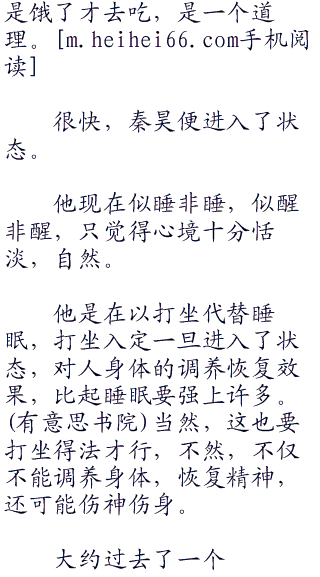 是饿了才去吃，是一个道
理。[m.heihei66.com手机阅
读]
很快，秦昊便进入了状
态。
他现在似睡非睡，似醒
非醒，只觉得心境十分恬
淡，自然。
他是在以打坐代替睡
眠，打坐入定一旦进入了状
态，对人身体的调养恢复效
果，比起睡眠要强上许多。
(有意思书院)当然，这也要
打坐得法才行，不然，不仅
不能调养身体，恢复精神，
还可能伤神伤身。
大约过去了一个